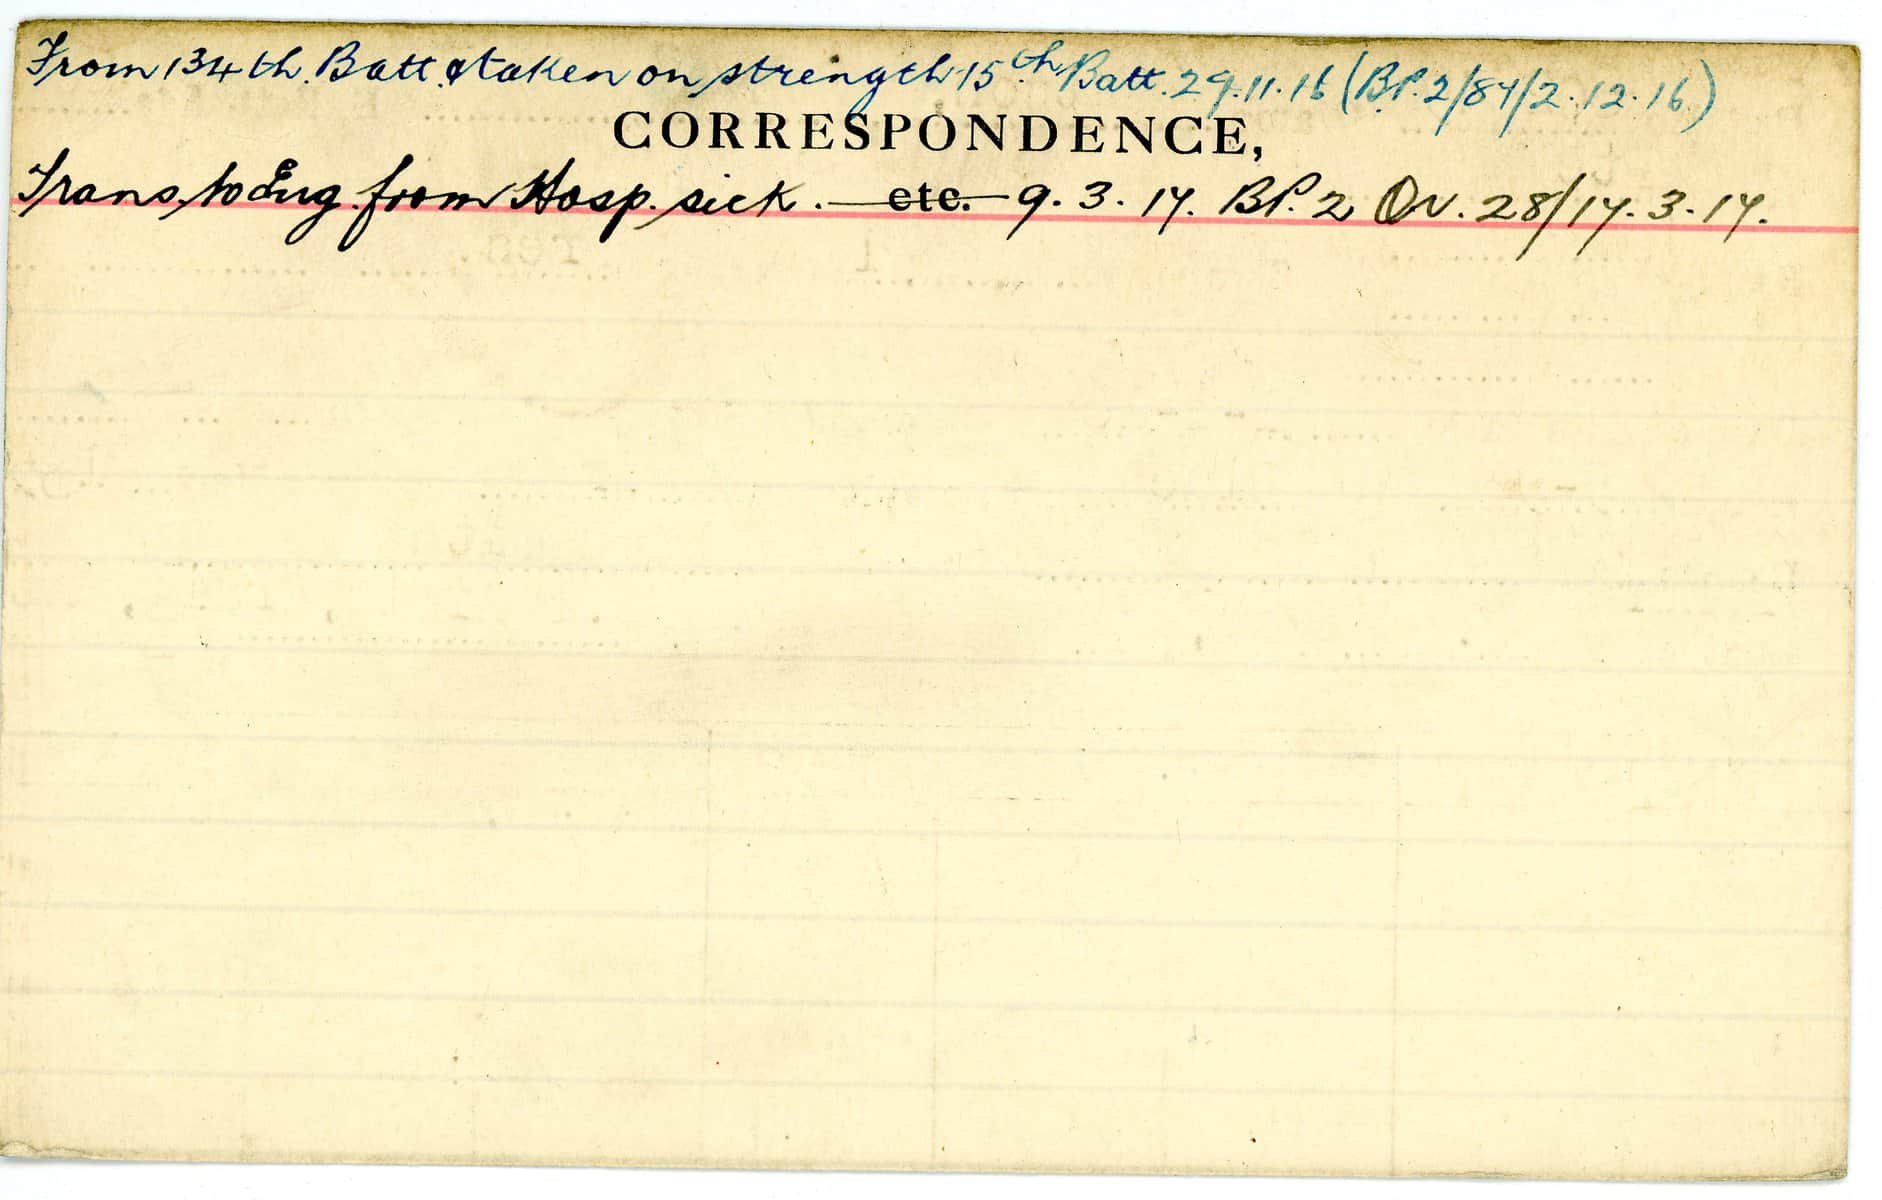 From 134th. Batt. & taken on strength 15th Batt. 29.11.16 (BP.2/84/2.12.16.)
CORRESPONDENCE,
Trans. to Eng. from Hosp. sick. etc. 9.3.17. BP.2 Or. 28/17.3.17.